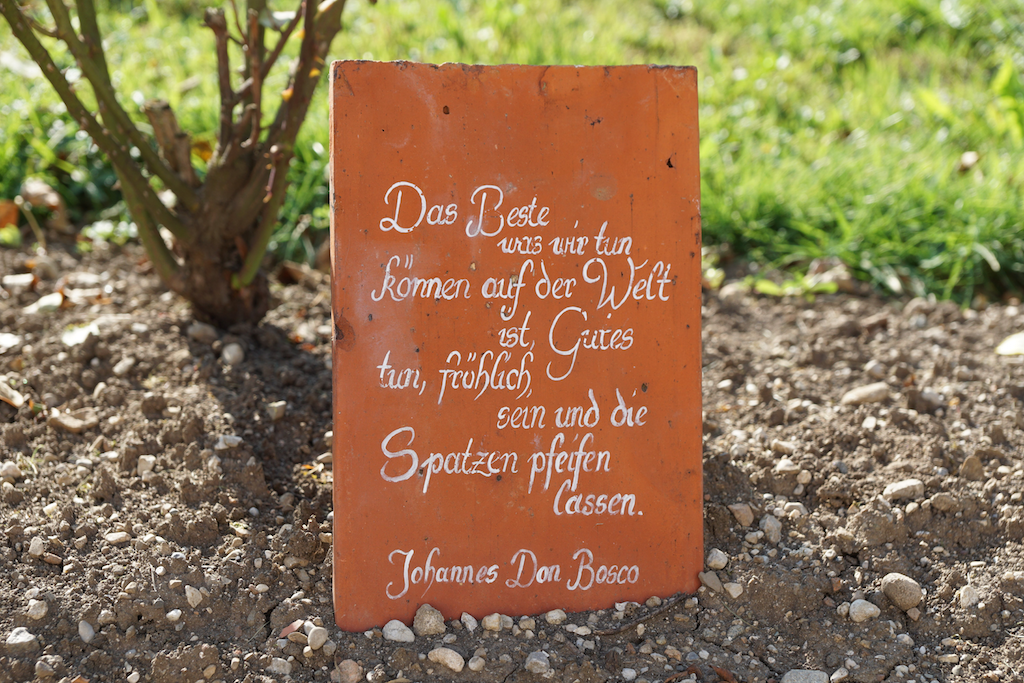 Das Beste
was wir tun
können auf der Welt
ist, Gutes
tun, fröhlich,
sein und die
Spatzen pfeifen
lassen.
Johannes Don Bosco